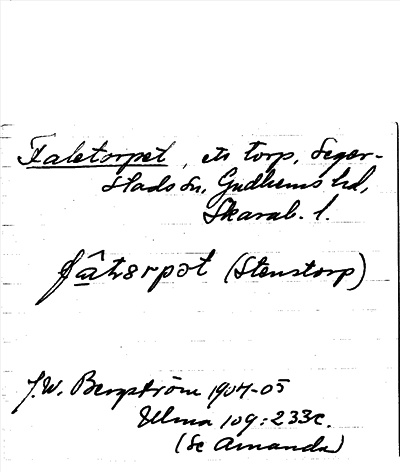 Faletorpet, ett torp, Seger-
stads sn, Gudhems hd,
Skarab. l.
fâ̱tərpət (Stenstorp)
J.W. Bergström 1904-05
Ulma 109:233c.
(Se Amanda)